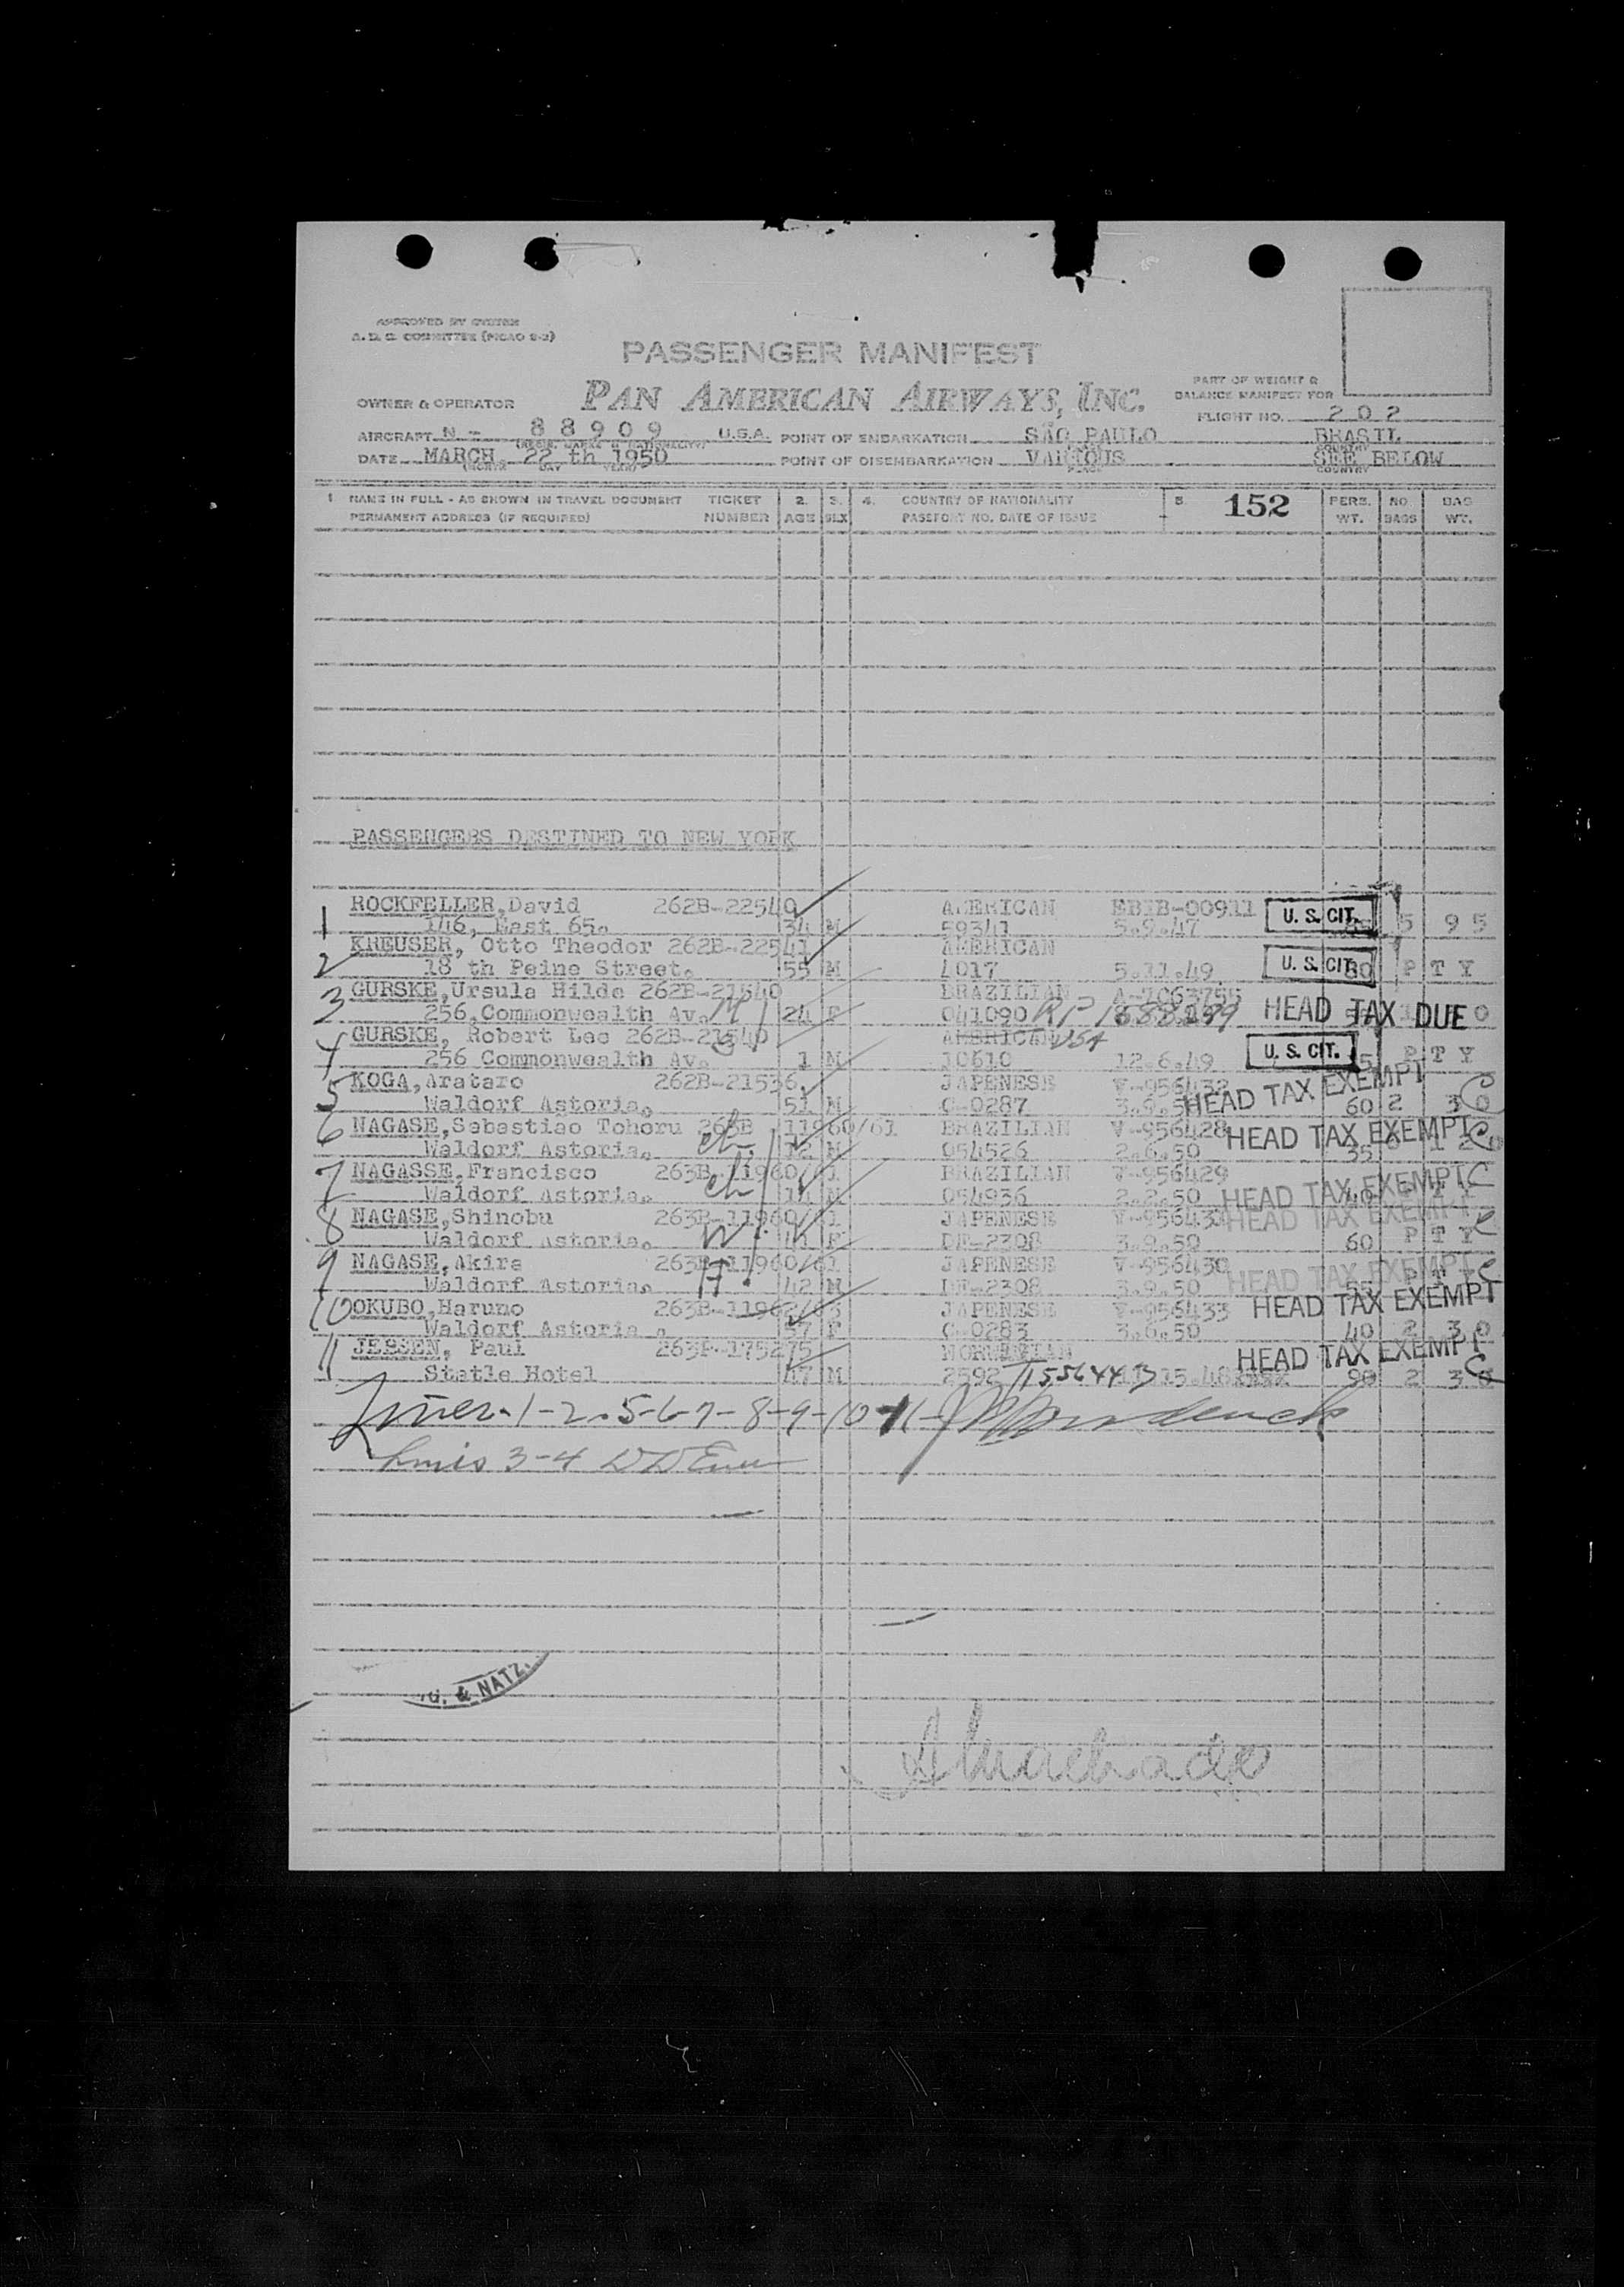 APPROVED BY SYSTEM
A. D. C. COMMITTEE (PICAO 2-2)
PASSENGER MANIFEST
PAN AMERICAN AIRWAYS, INC.
PART OF WEIGHT &
BALANCE MANIFEST FOR
OWNER & OPERATOR
FLIGHT NO. 2 0 2
AIRCRAFT N - 8 8 9 0 9 U.S.A. POINT OF EMBARKATION SÃO PAULO BRASIL
(REGIS. MARKS & NATIONALITY) COUNTRY
DATE MARCH 22 th 1950 POINT OF DISEMBARKATION VARIOUS SEE BELOW
(MONTH DAY YEAR) PLACE COUNTRY
1. NAME IN FULL - AS SHOWN IN TRAVEL DOCUMENT TICKET 2. 3. 4. COUNTRY OF NATIONALITY 5. 152 PERS. NO. BAG
PERMANENT ADDRESS (IF REQUIRED) NUMBER AGE SEX PASSPORT NO. DATE OF ISSUE WT. BAGS WT.
PASSENGERS DESTINED TO NEW YORK
1 ROCKFELLER, David 262B-22540 AMERICAN EBIB-00911 U. S. CIT.
146, East 65. 34 M 59341 5.9.47 5 9 5
2 KREUSER, Otto Theodor 262B-22541 AMERICAN U. S. CIT.
18 th Peine Street. 55 M 4017 5.11.49 80 P T Y
3 GURSKE, Ursula Hilde 262B-21540 BRAZILIAN HEAD TAX DUE
256, Commonwealth Av. M 24 F 041090 RP
4 GURSKE, Robert Lee 262B-21540 AMERICAN USA U. S. CIT.
256 Commonwealth Av. 1 M 10610 12.6.49 P T Y
5 KOGA, Arataro 262B-21536. JAPENESE V-956432 HEAD TAX EXEMPT C
Waldorf Astoria. 51 M C-0287 60 2 3 0
6 NAGASE, Sebastiao Tohoru 263B 11960/61 BRAZILIAN V-956428 HEAD TAX EXEMPT C
Waldorf Astoria. ch. 12 M 054526 2.6.50 35
7 NAGASSE, Francisco 263B-11960/61 BRAZILIAN V-956429 HEAD TAX EXEMPT C
Waldorf Astoria. ch 14 M 054936 2.2.50 40
8 NAGASE, Shinobu 263B-11960/61 JAPENESE HEAD TAX EXEMPT
Waldorf Astoria. W 41 F DF-2308 3.9.50 60 P T Y C
9 NAGASE, Akira 263B-11960/61 JAPENESE V-956430 HEAD TAX EXEMPT C
Waldorf Astoria. H 42 M DF-2308 3.9.50 55
10 OKUBO, Haruno 263B-11962/63 JAPENESE V-956433 HEAD TAX EXEMPT
Waldorf Astoria. 57 F C-0283 3.6.50 40 2 3 0
11 JERSEN, Paul 263B-175275 NORWEGIAN HEAD TAX EXEMPT C
Statle Hotel 47 M 2592 90 2 3 0
1-2-5-6-7-8-9-10-11
3-4
& NATZ.